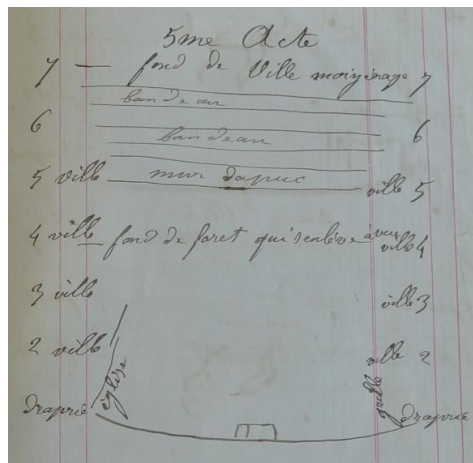 5me Acte
7 — fond de Ville moyenage 7
bandeau
6 bandeau 6
5 ville mur dapui ville 5
4 ville fond de foret qui s'enlève ville 4
3 ville ville 3
2 ville ville 2
église
draprie draprie